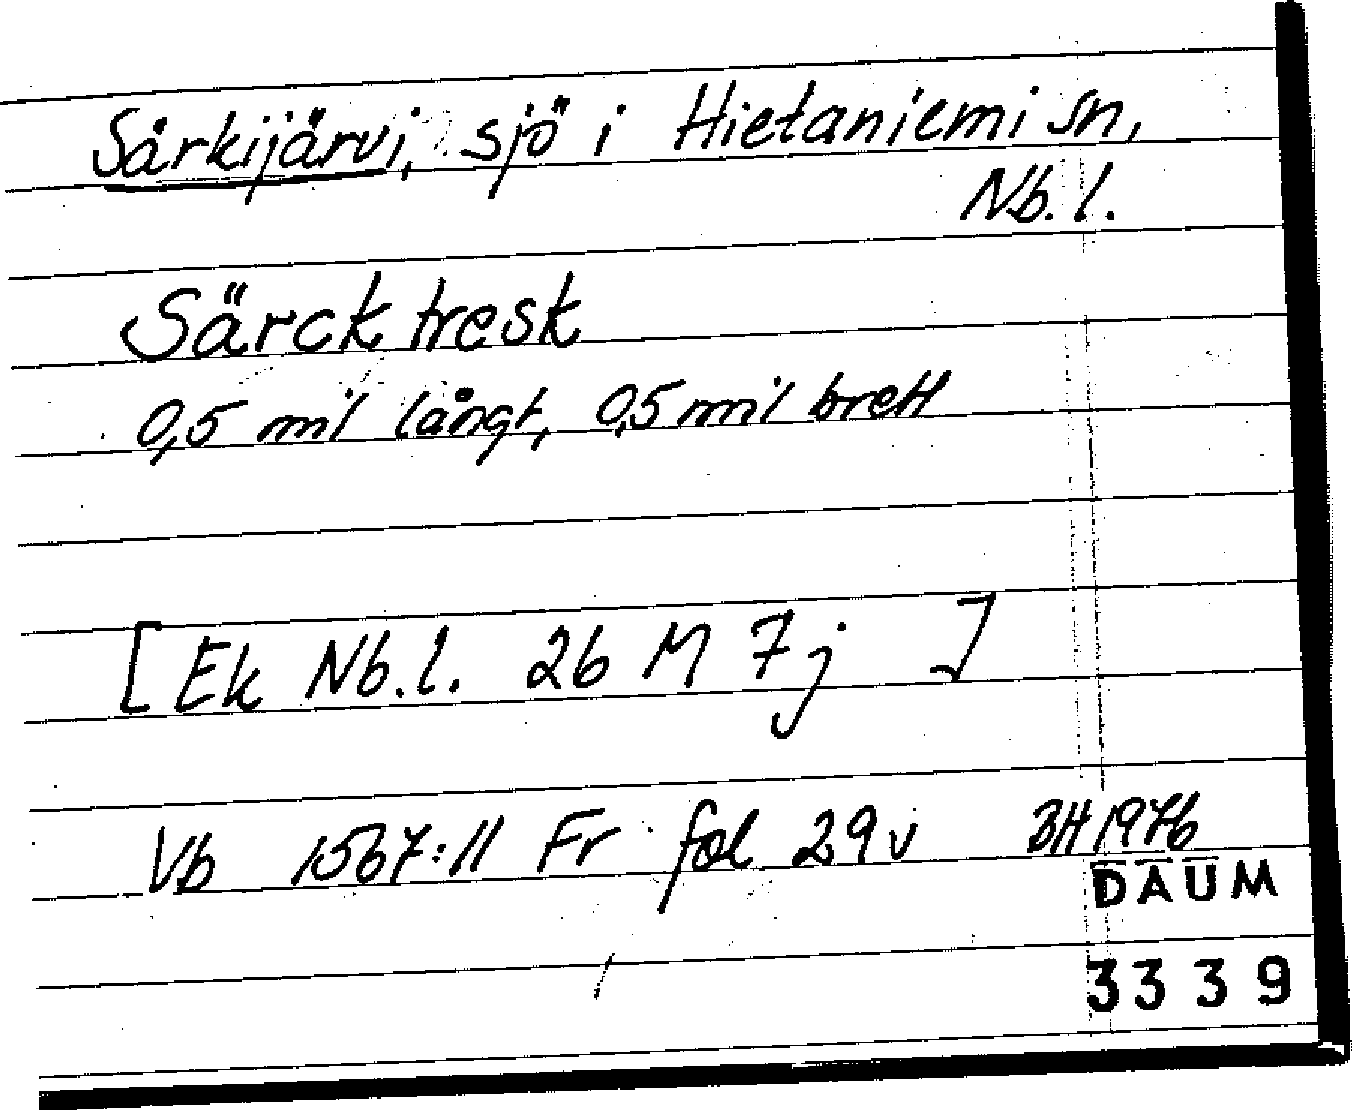 Särkijärvi, sjö i Hietaniemi sn,
Nb. l.
Särck tresk
0,5 mil långt, 0,5 mil brett
[Ek Nb. l. 26 M 7 j ]
Vb 1567:11 Fr fol 29 v BH 1976
DAUM
3339